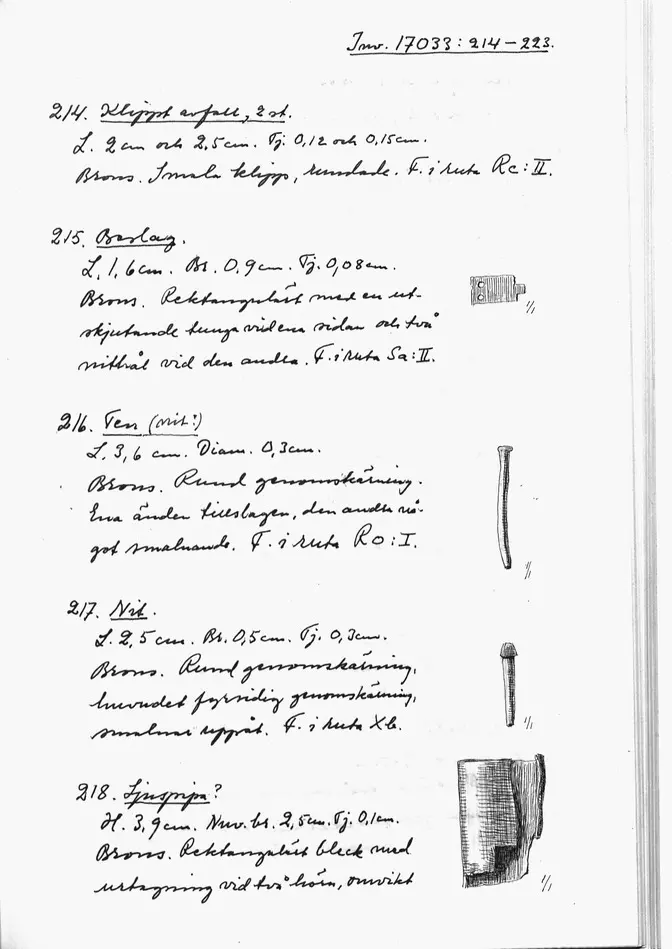 Inv. 17033:214-223.
214. Klippt avfall, 2 st.
L. 2 cm och 2,5 cm. Tj. 0,12 och 0,15 cm.
Brons. Smala klipp, rundade. F. i ruta Rc:II.
215. Beslag.
L. 1,6 cm. Br. 0,9 cm. Tj. 0,08 cm.
Brons. Rektangulärt med en ut-
skjutande tunga vid ena sidan och två
nithål vid den andra. F. i ruta Sa:II.
1/1
216. Ten (nit?)
L. 3,6 cm. Diam. 0,3 cm.
Brons. Rund genomskärning.
Ena änden tillslagen, den andra nå-
got smalnande. F. i ruta Ro:I.
1/1
217. Nit.
L. 2,5 cm. Br. 0,5 cm. Tj. 0,3 cm.
Brons. Rund genomskärning,
huvudet fyrsidig genomskärning,
smalnar uppåt. F. i ruta Xb.
1/1
218. Ljuspipa?
H. 3,9 cm. Nuv. br. 2,5 cm. Tj. 0,1 cm.
Brons. Rektangulärt bleck med
urtagning vid två hörn, omvikt
1/1